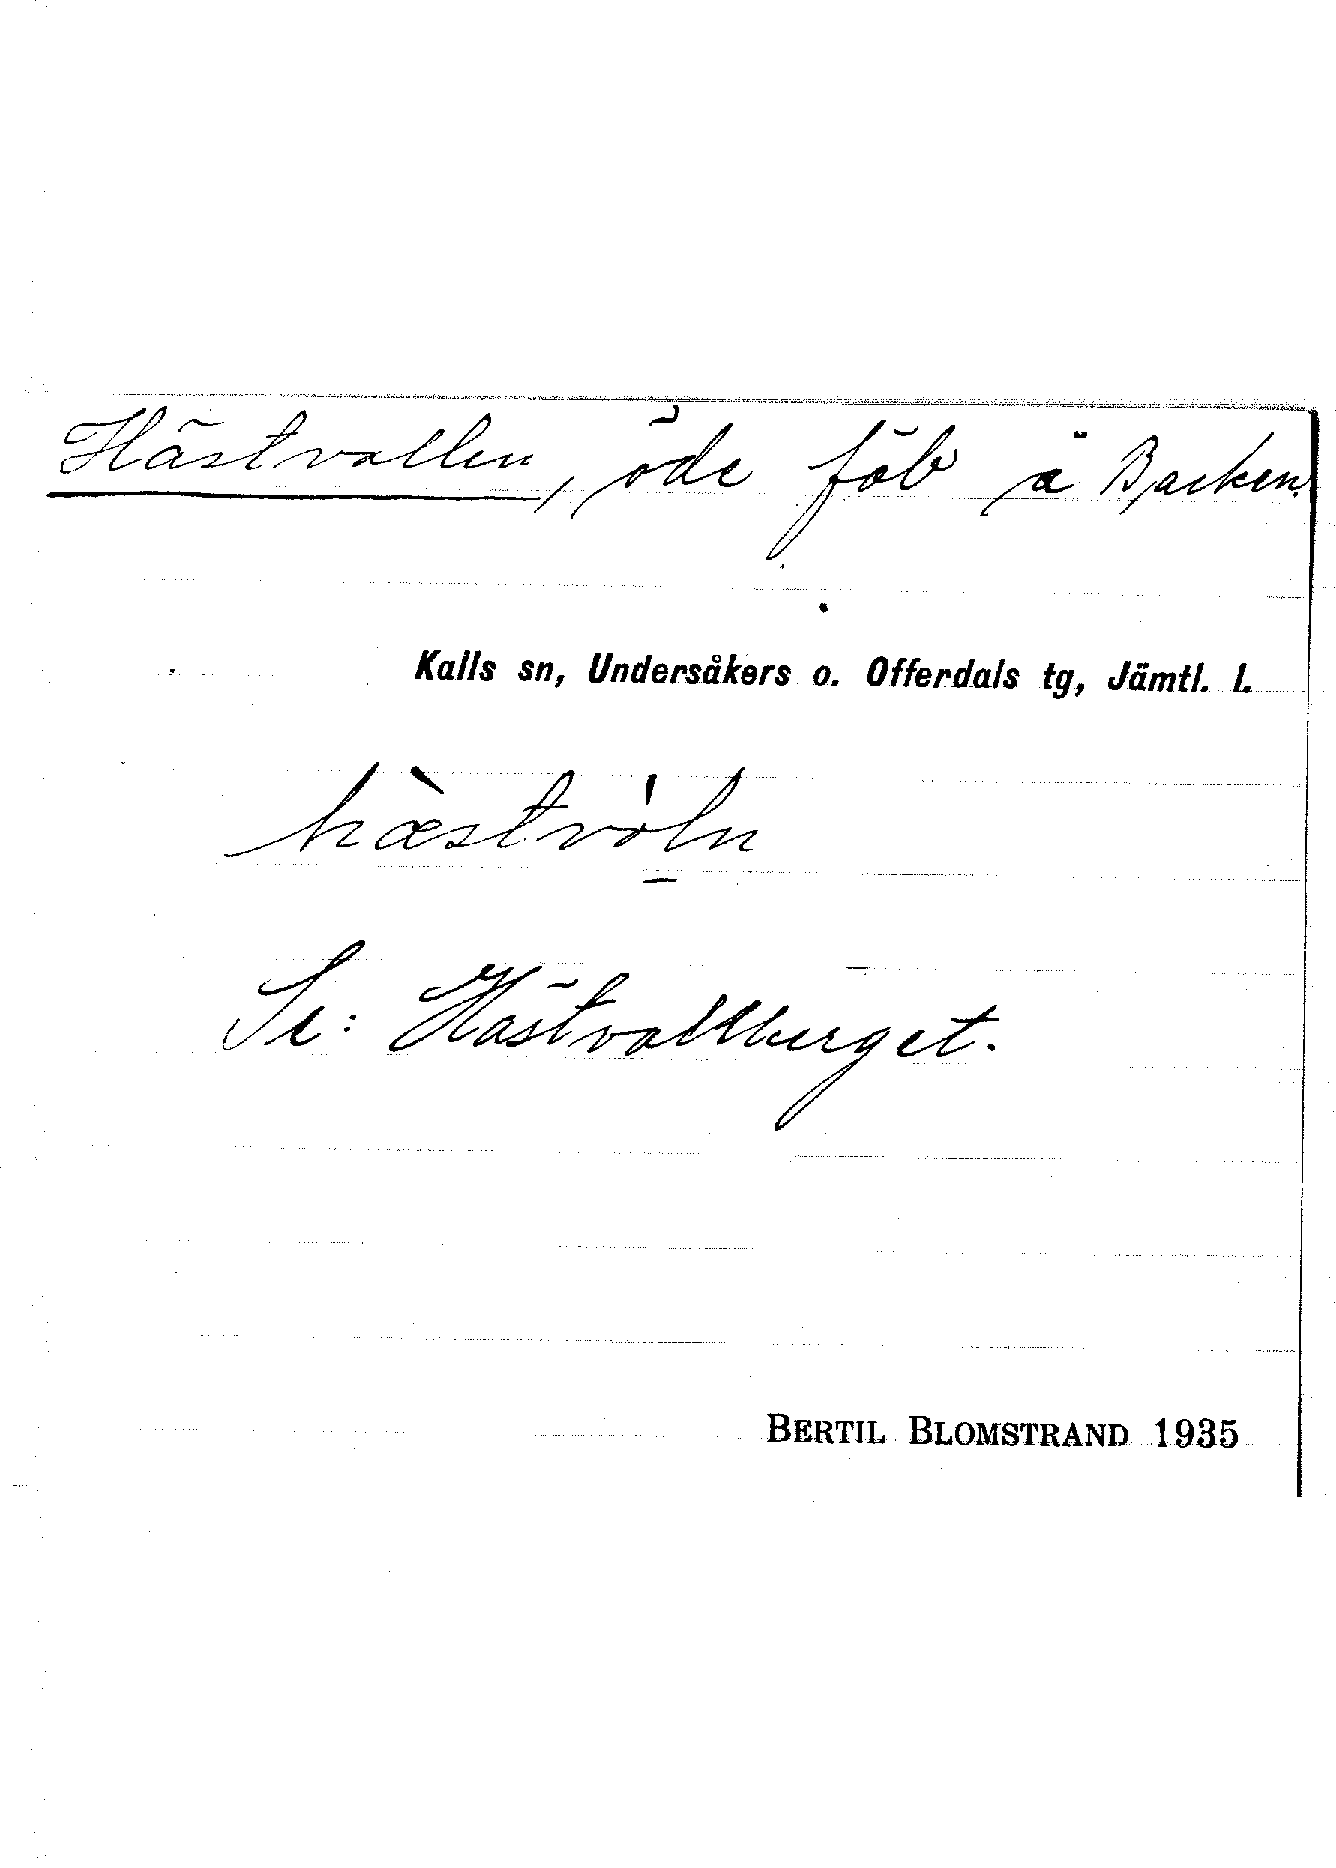 Hästvallen, öde fäb å Backen.
Kalls sn, Undersåkers o. Offerdals tg, Jämtl. l.
hæ̀stvòln
Se: Hästvallberget.
BERTIL BLOMSTRAND 1935